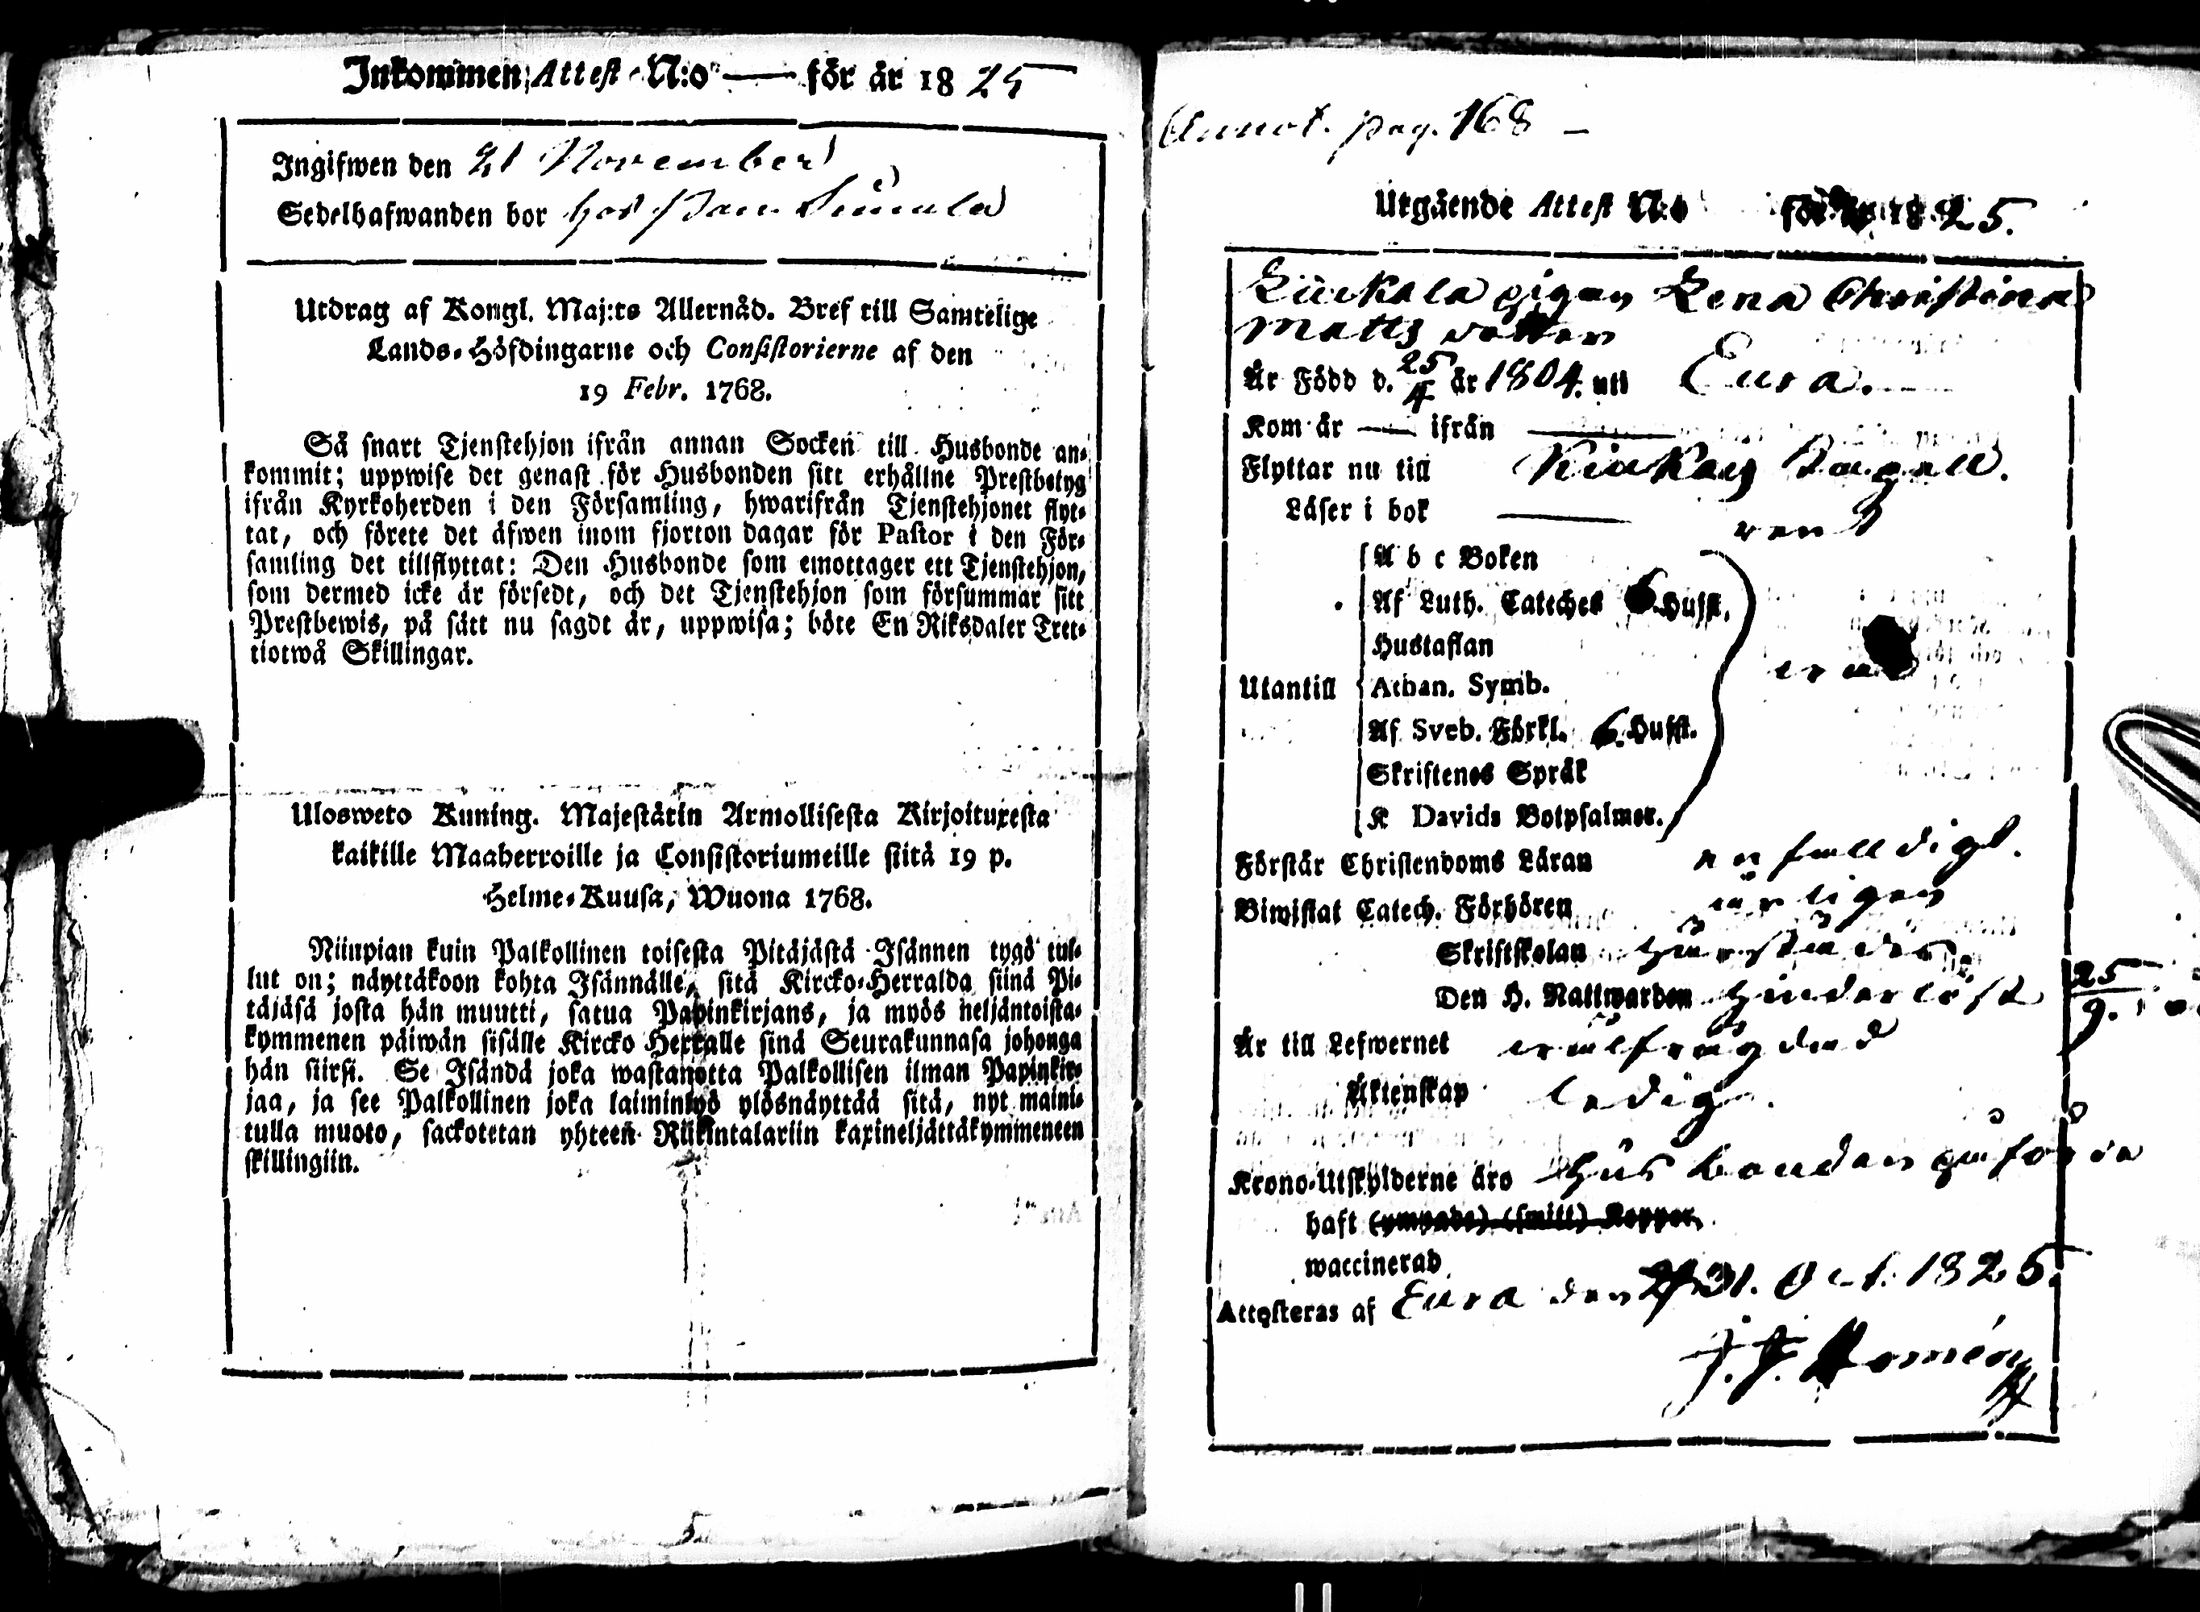 Inkommen Attest N:o — för år 1825
Ingifwen den 21 November
Sedelhafwanden bor hos
Utdrag af Kongl. Maj:ts Allernåd. Bref till Samtelige
Lands-Höfdingarne och Consistorierne af den
19 Febr. 1768.
Så snart Tjenstehjon ifrån annan Socken till Husbonde an-
kommit; uppwise det genast för Husbonden sitt erhållne Prestbetyg
ifrån Kyrkoherden i den Församling, hwarifrån Tjenstehjonet flyt-
tat, och förete det äfwen inom fjorton dagar för Pastor i den För-
samling det tillflyttat: Den Husbonde som emottager ett Tjenstehjon,
som dermed icke är försedt, och det Tjenstehjon som försummar sitt
Prestbewis, på sätt nu sagdt är, uppwisa; böte En Riksdaler Tret-
tiotwå Skillingar.
Ulosweto Kuning. Majestätin Armollisesta Kirjoituxesta
kaikille Maaherroille ja Consistoriumeille siitä 19 p.
Helme-Kuusa, Wuona 1768.
Niinpian kuin Palkollinen toisesta Pitäjästä Isännen tygö tul-
lut on; näyttäkoon kohta Isännälle, sitä Kircko-Herralda siinä Pi-
täjäsä josta hän muutti, saatua Papinkirjans, ja myös neljäntoista-
kymmenen päiwän sisälle Kircko Herralle sinä Seurakunnasa johonga
hän siirsi. Se Isändä joka wastanotta Palkollisen ilman Papinkir-
jaa, ja see Palkollinen joka laiminlyö ylösnäyttää sitä, nyt maini-
tulla muoto, sackotetan yhteen Riikintalariin kaxineljättäkymmeneen
skillingiin.
Annot. pag. 168 –
Utgående Attest N:o för år 1825.
pigan Lena Christina
Matts dotter
År Född d. 25/4 år 1804. uti Eura.
Kom år — ifrån —
Flyttar nu till
Läser i bok — rent
A b c Boken
Af Luth. Cateches 6 Hufst.
Hustaflan
Utantill Athan. Symb.
Af Sveb. Förkl. 6. Hufst.
Skriftenes Språk
K Davids Botpsalmer.
Förstår Christendoms Läran enfalldigt.
Biwistat Catech. Förhören årligen
Skriftskolan
Den H. Nattwarden hinderlöst 25/9.
År till Lefwernet
Äktenskap ledig.
Krono-Utskylderne äro Husbonden
haft (ympade) (smitt) Koppor,
waccinerad
Attesteras af Eura den 31. Oct. 1825.